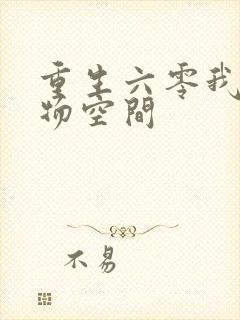 重生六零我
物空間
不易